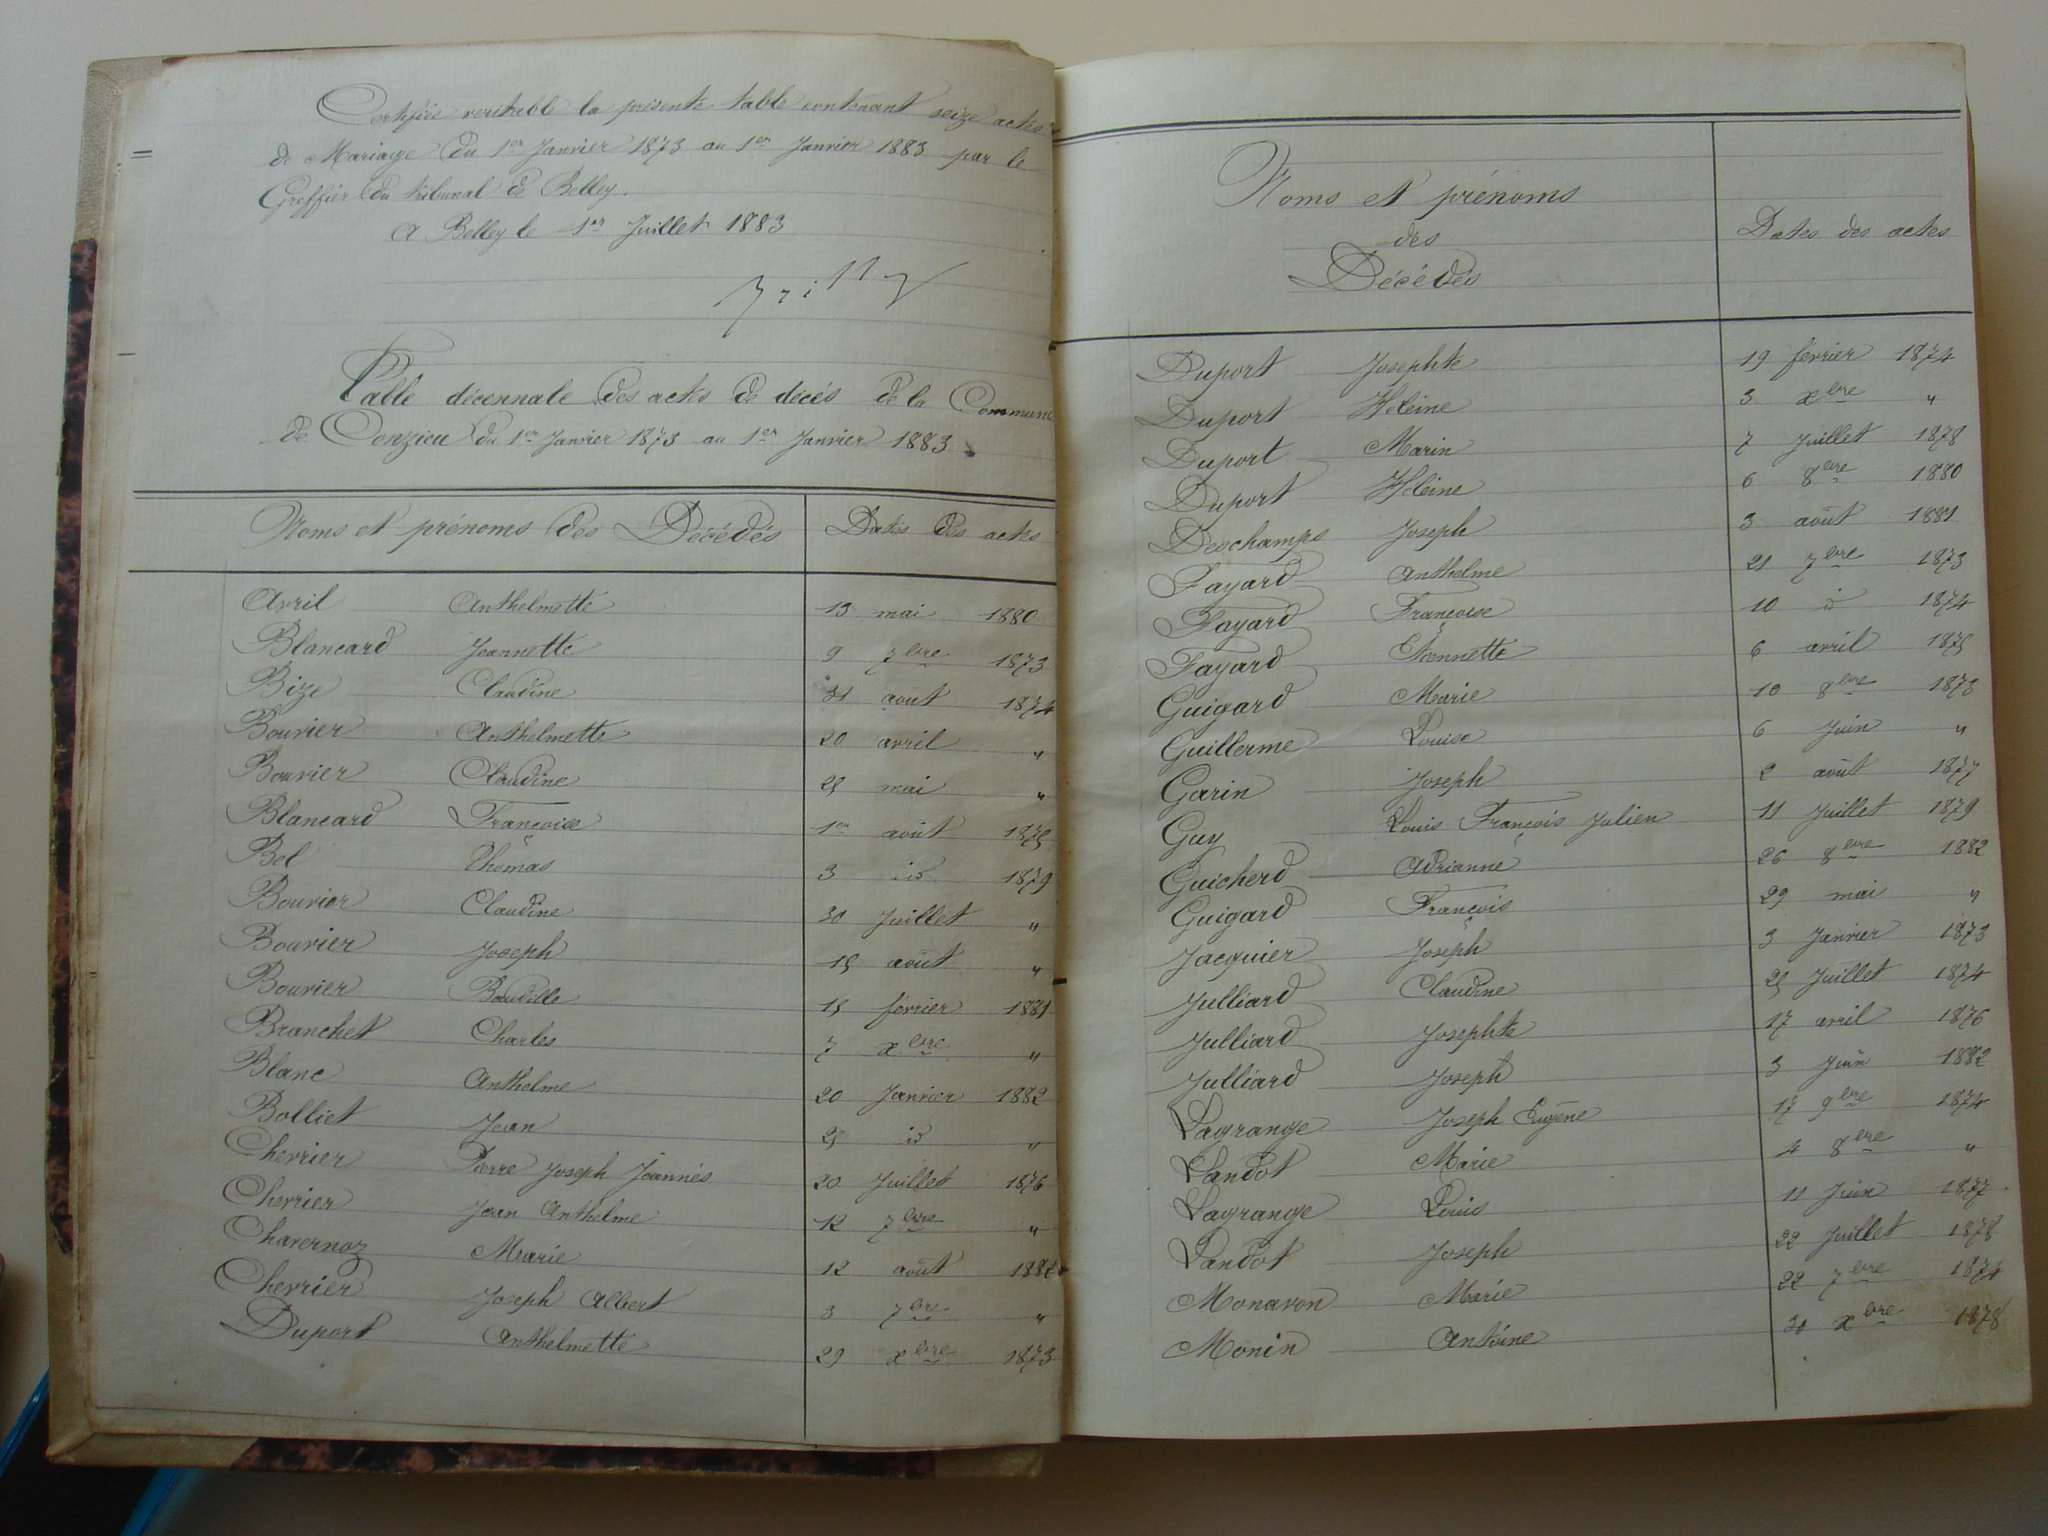 Certifiée veritable la présente table contenant seize actes
de Mariage du 1er Janvier 1873 au 1er Janvier 1883 par le
Greffier du tribunal de Belley.
A Belley le 1er Juillet 1883
Table décennale des actes de décés de la Commune
de Conzieu du 1er Janvier 1873 au 1er Janvier 1883
Noms et prénoms des Décédés Dates des actes
Avril Anthelmette 13 mai 1880
Blancard Jeannette 9 7bre 1873
Bize Claudine 31 août 1874
Bouvier Anthelmette 20 avril "
Bouvier Claudine 25 mai "
Blancard Françoise 1er août 1875
Bel Thomas 3 id 1879
Bouvier Claudine 30 Juillet "
Bouvier Joseph 15 août "
Bouvier Baudille 15 février 1881
Branchet Charles 7 xbre "
Blanc Anthelme 20 Janvier 1882
Bolliet Jean 25 id "
Chevrier Pierre Joseph Joannés 20 Juillet 1876
Chevrier Jean Anthelme 12 7bre "
Chavernoz Marie 12 août 1882
Chevrier Joseph Albert 3 7bre "
Duport Anthelmette 29 xbre 1873
Noms et prénoms
des
Décédés
Dates des actes
Duport Josephte 19 fevrier 1874
Duport Héleine 3 xbre "
Duport Marin 7 Juillet 1878
Duport Héleine 6 8bre 1880
Deschamps Joseph 3 août 1881
Fayard Anthelme 21 7bre 1873
Fayard Françoise 10 id 1874
Fayard Jeannette 6 avril 1875
Guigard Marie 10 8bre 1873
Guillerme Louise 6 Juin "
Garin Joseph 2 août 1877
Guy Louis François Julien 11 Juillet 1879
Guicherd Adrianne 26 8bre 1882
Guigard François 29 mai "
Jacquier Joseph 3 Janvier 1873
Julliard Claudine 25 Juillet 1874
Julliard Josephte 17 avril 1876
Julliard Joseph 3 Juin 1882
Lagrange Joseph Eugène 17 9bre 1874
Landot Marie 4 8bre "
Lagrange Louis 11 Juin 1877
Landot Joseph 22 Juillet 1878
Monavon Marie 22 7bre 1874
Monin Antoine 30 xbre 1878